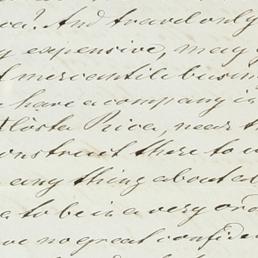 And travel only
expensive, may
mercantile busin
have a company in
Costa Rica, near t
onstruct there to
any thing about
to be in a very ord
no great confide